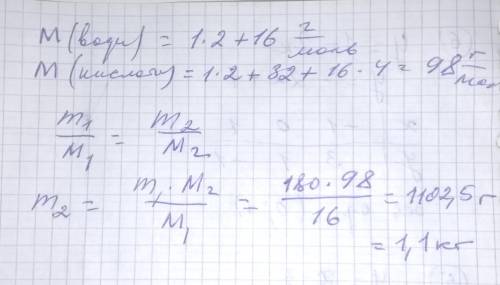 M(воды) = 1·2+16 г/моль
M(кислоты) = 1·2+32+16·4 = 98 г/мол
m1/M1 = m2/M2
m2 = m1·M2/M1 = 180·98/16 = 1102,5 г
= 1,1 кг